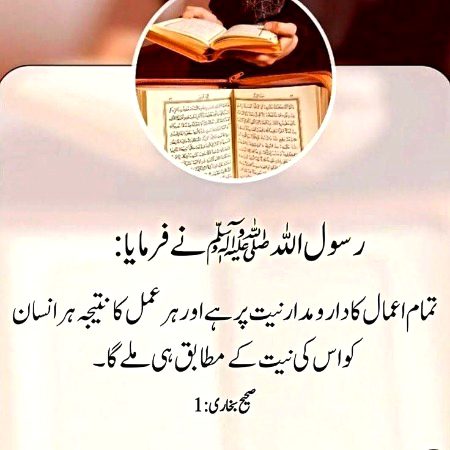 رسول اللہ ﷺ نے فرمایا:
تمام اعمال کا دارومدار نیت پر ہے اور ہر عمل کا نتیجہ ہر انسان
کو اس کی نیت کے مطابق ہی ملے گا۔
صحیح بخاری: 1